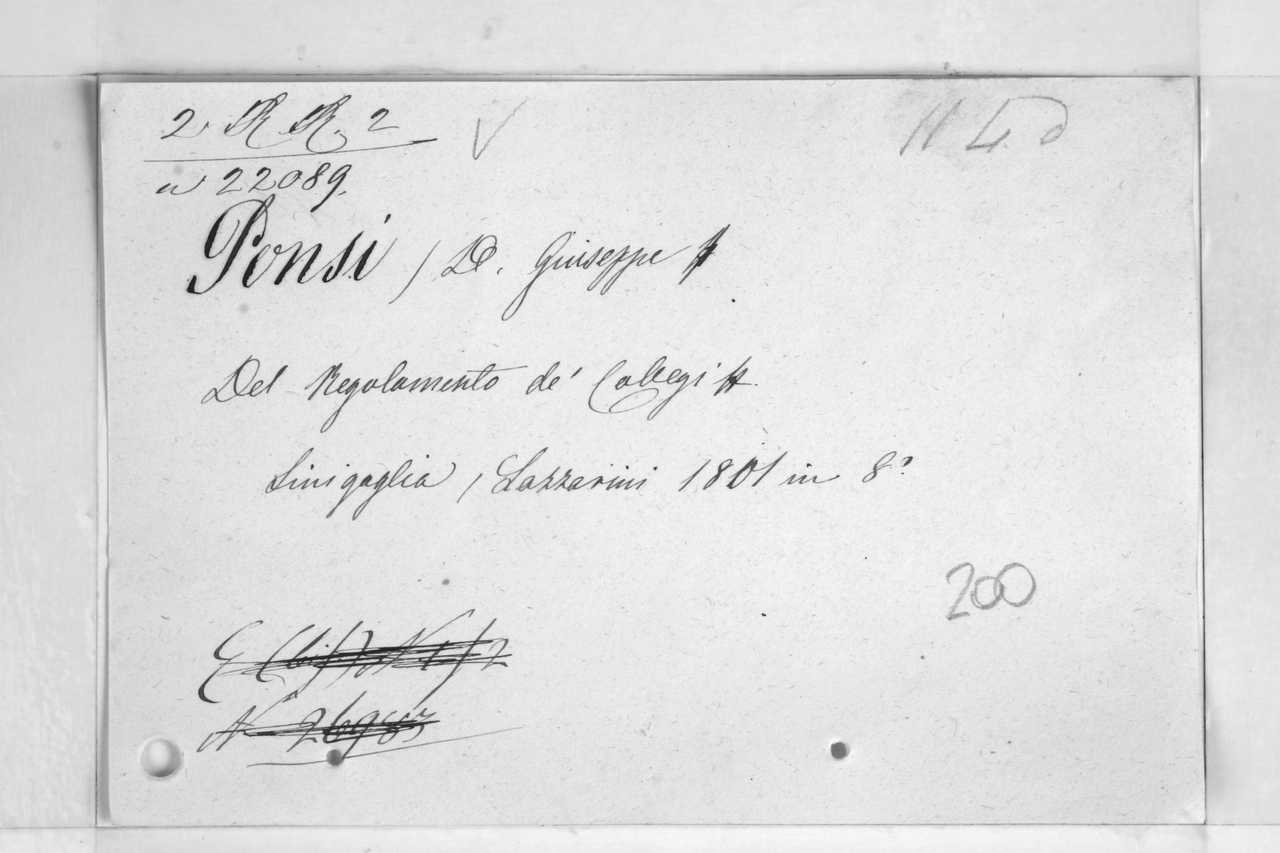 2. R. R. 2
n 22089.
Ponsi / D. Giuseppe
Del Regolamento de' Collegi
Sinigaglia / Lazzarini 1801 in 8°
200
N 26983